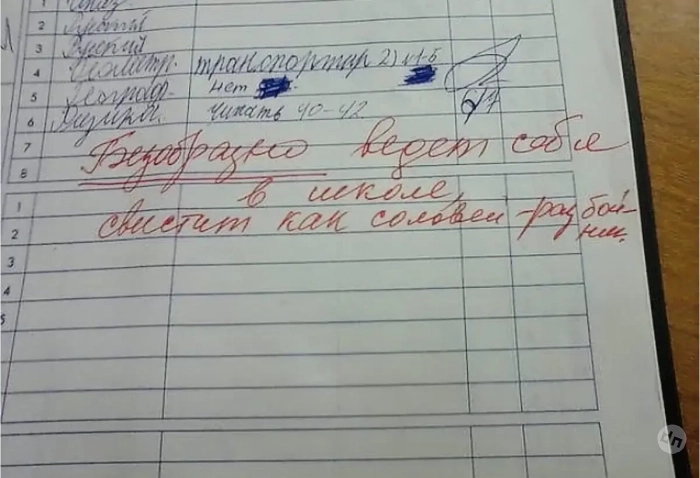 1
2 Русский
3 Русский
4 Геометр. транспортир 2) п1-5
5 Географ. нет
6 Физика. Читать 40-42
7 Безобразно ведет себя
8 в школе,
1 свистит как соловей-разбой-
2 ник.
3
4
5